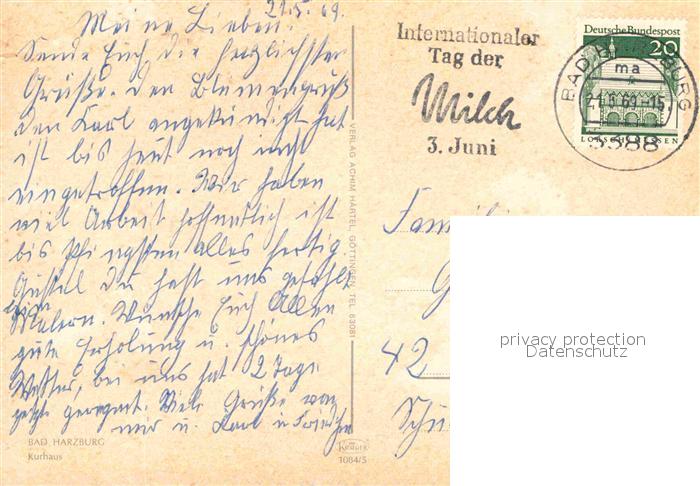 21.5.69.
Meine Lieben.
Sende Euch die herzlichsten
Grüße. Den Blumengruß
den Karl angekündigt hat
ist bis heut noch nicht
eingetroffen. Wir haben
viel Arbeit hoffentlich ist
bis Pfingsten alles fertig.
Gustel du hast uns gefehlt
beim
Malern. Wünsche Euch Allen
gute Erholung u. schönes
Wetter, bei uns hat 2 Tage
geregnet. Viele Grüße von
mir u. Karl u Friedchen
BAD HARZBURG
Kurhaus
VERLAG ACHIM HÄRTEL, GÖTTINGEN, TEL. 63081
KRÜGER
1084/5
Internationaler
Tag der
Milch
3. Juni
Deutsche Bundespost
20
LORSCH/HESSEN
BAD HARZBURG
ma
21.5.69-15
3388
Familie
G
42
Schu
privacy protection
Datenschutz